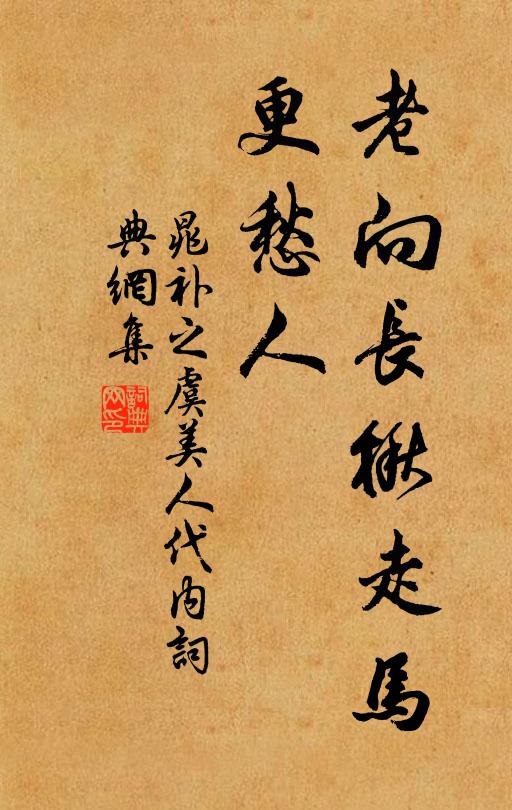 老向長楸走馬
更愁人
晁补之虞美人代内詞
典網集
詞典网印